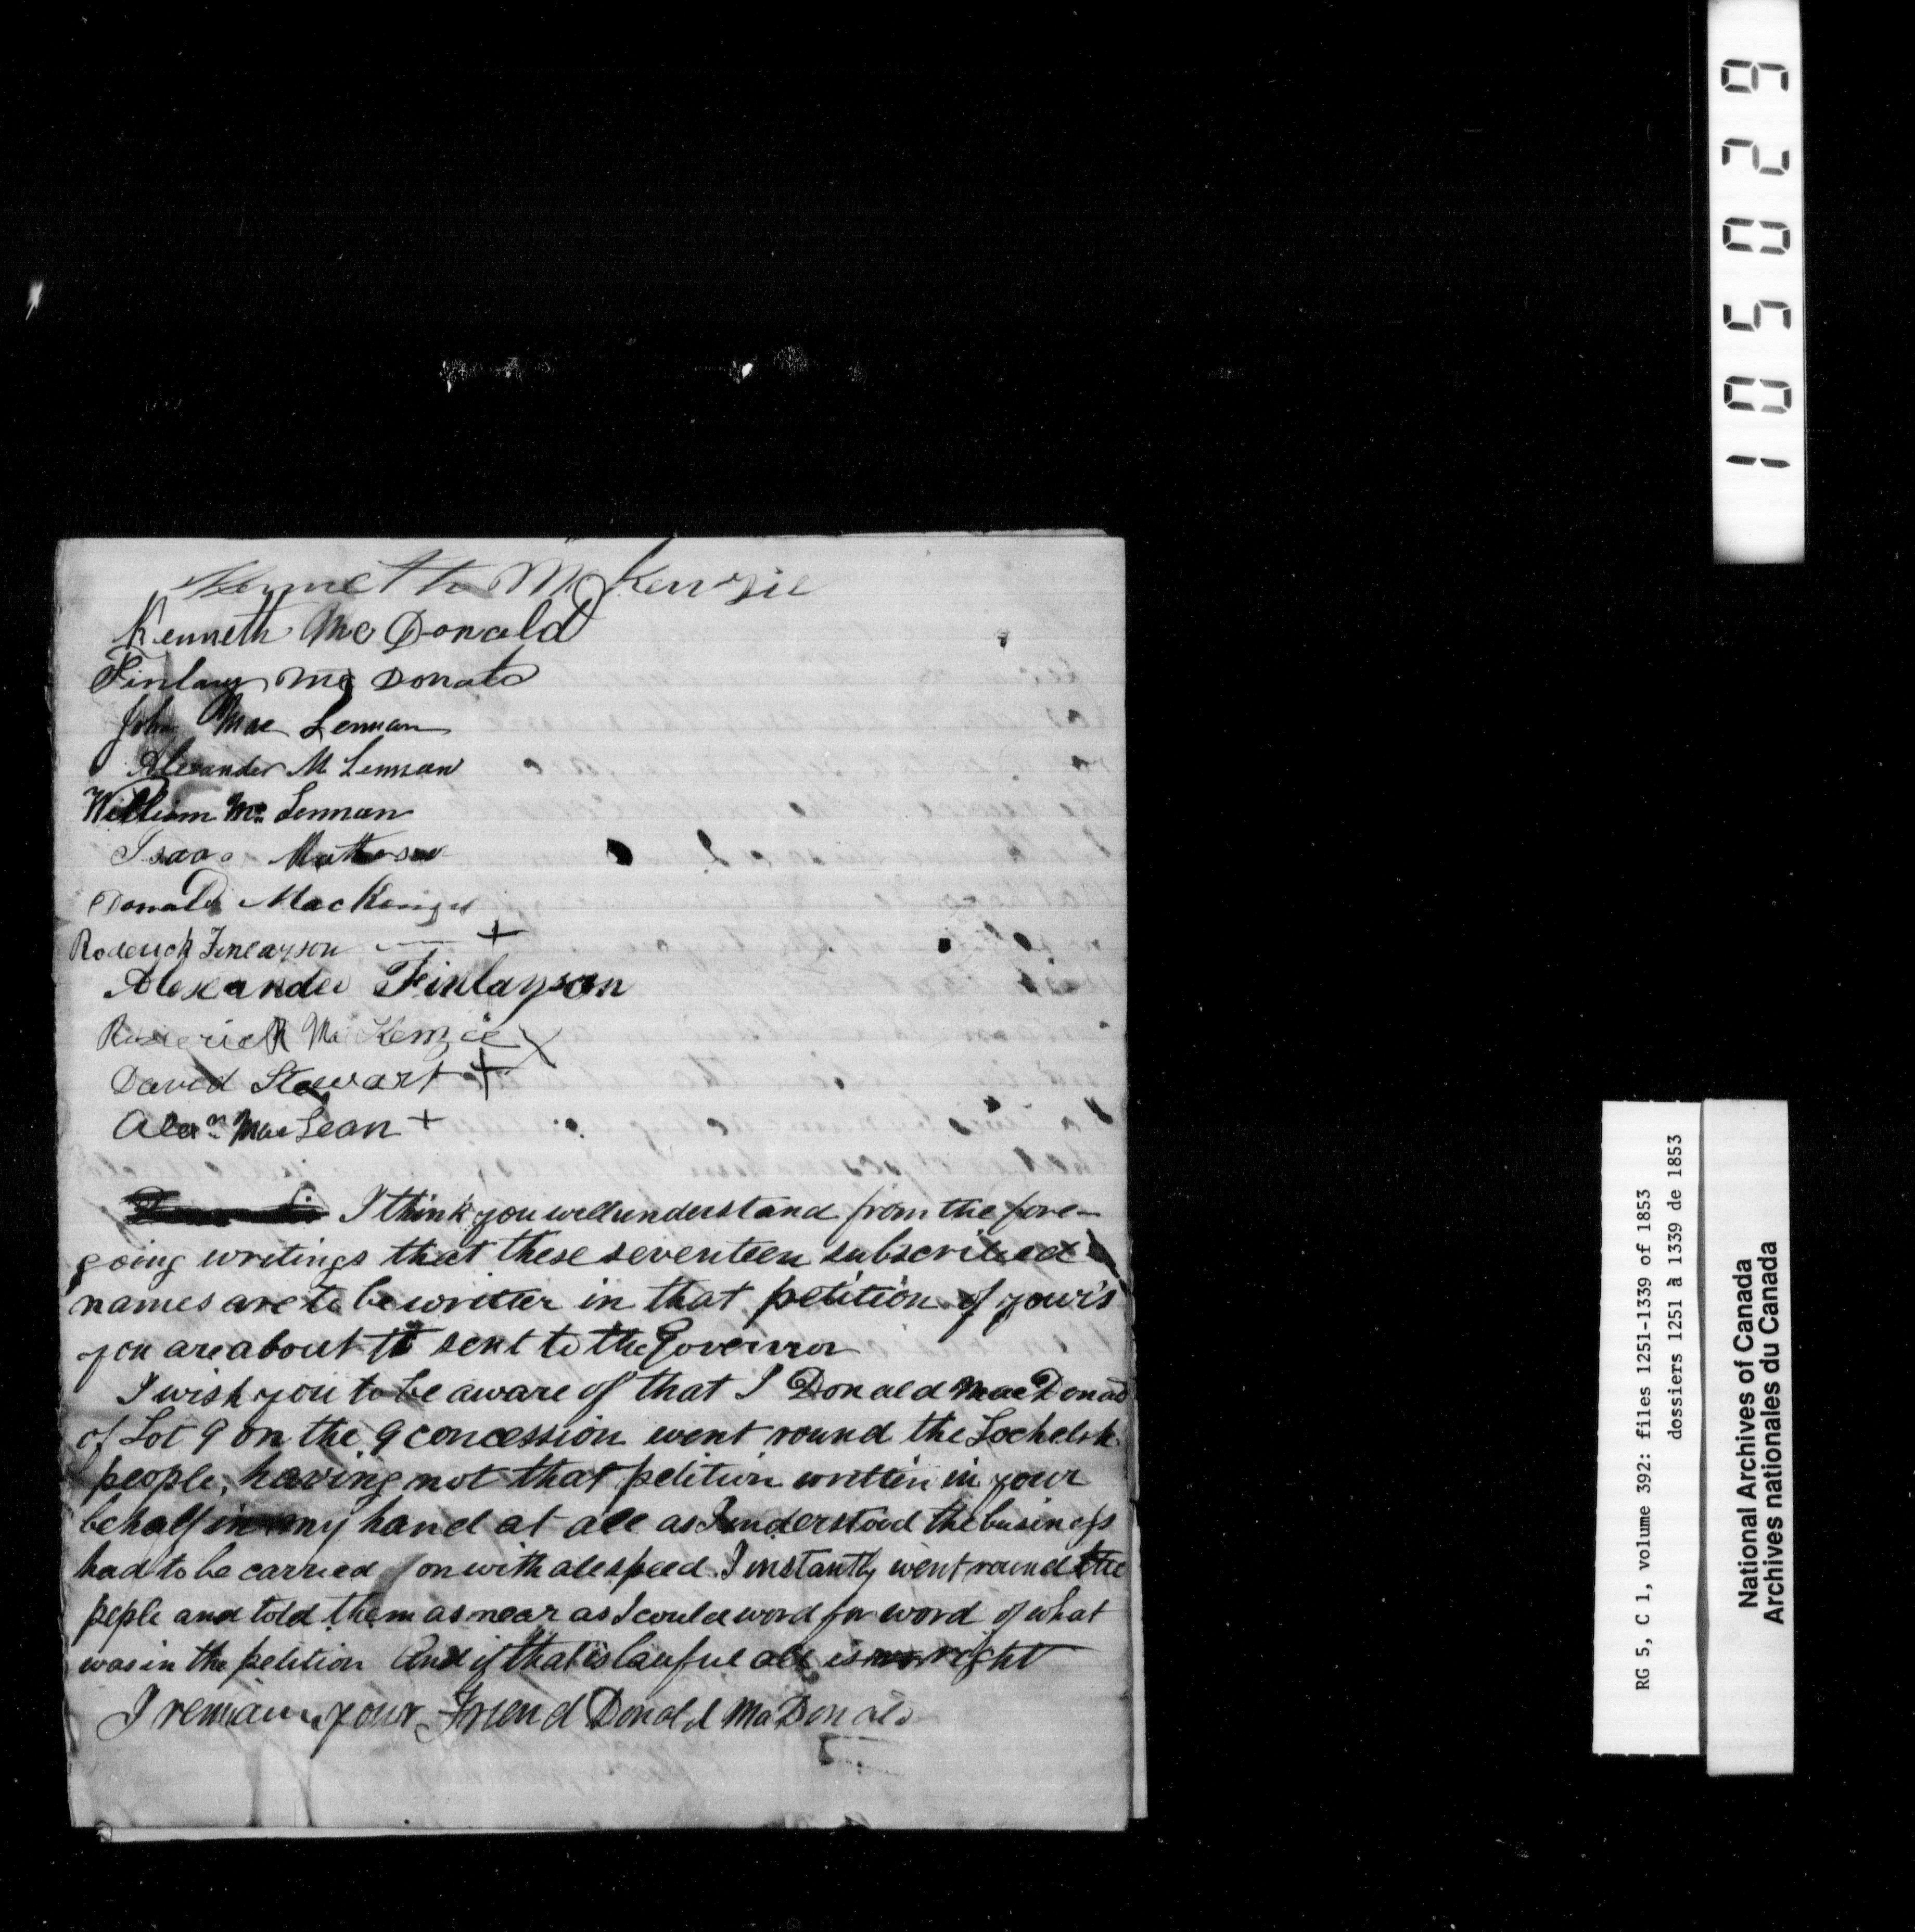 Kenneth McKenzie
Kenneth Mc Donald
Finlay Mc Donald
John Mac Lennan
Alexander Mc Lennan
William Mc Lennan
Isaac Matheson
Donald MacKenzie
Roderick Finlayson +
Alexander Finlayson
Roderick McKenzie X
David Stewart +
Alexn MacLean +
I think you will understand from the fore-
going writings that these seventeen subscribed
names are to be writter in that petition of your's
you are about to sent to the Governor
I wish you to be aware of that I Donald MacDonald
of Lot 9 on the 9 concession went round the Lochelsh
people, having not that petition written in your
behalf in my hand at all as I understood the business
had to be carried on with all speed. I instantly went round the
peple and told them as near as I could word for word of what
was in the petition And if that is lawful all is right
I remain your Friend Donald MaDonald
105029
RG 5, C 1, volume 392: files 1251-1339 of 1853
dossiers 1251 à 1339 de 1853
National Archives of Canada
Archives nationales du Canada